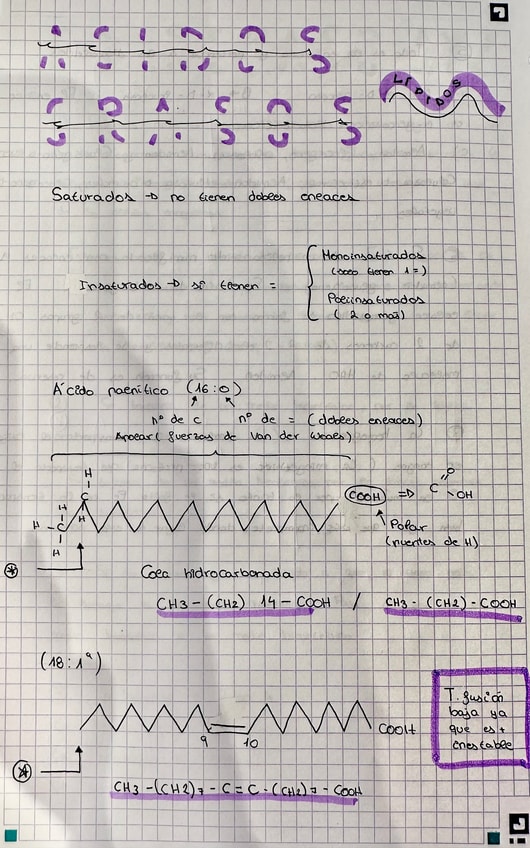 LIPIDOS
Saturados → no tienen dobles enlaces
Insaturados → si tienen =
Monoinsaturados
(solo tienen 1 =)
Poliinsaturados
(2 o más)
Ácido palmítico (16:0)
nº de c nº de = (dobles enlaces)
Apolar (fuerzas de Van der Waals)
H
|
C
H
H
H - C
H
COOH ⇒ C
O
OH
Polar
(puentes de H)
Cola hidrocarbonada
CH3 - (CH2) 14 - COOH / CH3 - (CH2) - COOH
(18:1⁹)
9 10
COOH
T. fusión
baja ya
que es +
inestable
CH3 -(CH2)7 - C = C - (CH2)7 - COOH